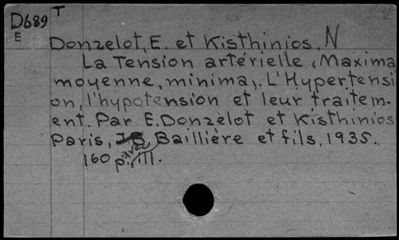 D689 T
E
Donzelot, E. et Kisthinios, N
La Tension artérielle (Maxima
moyenne, minima). L'Hypertensi
on, l'hypotension et leur traitem-
ent. Par E. Donzelot et Kisthinios
Paris, J B Baillière et fils, 1935.
160 p. avec ill.